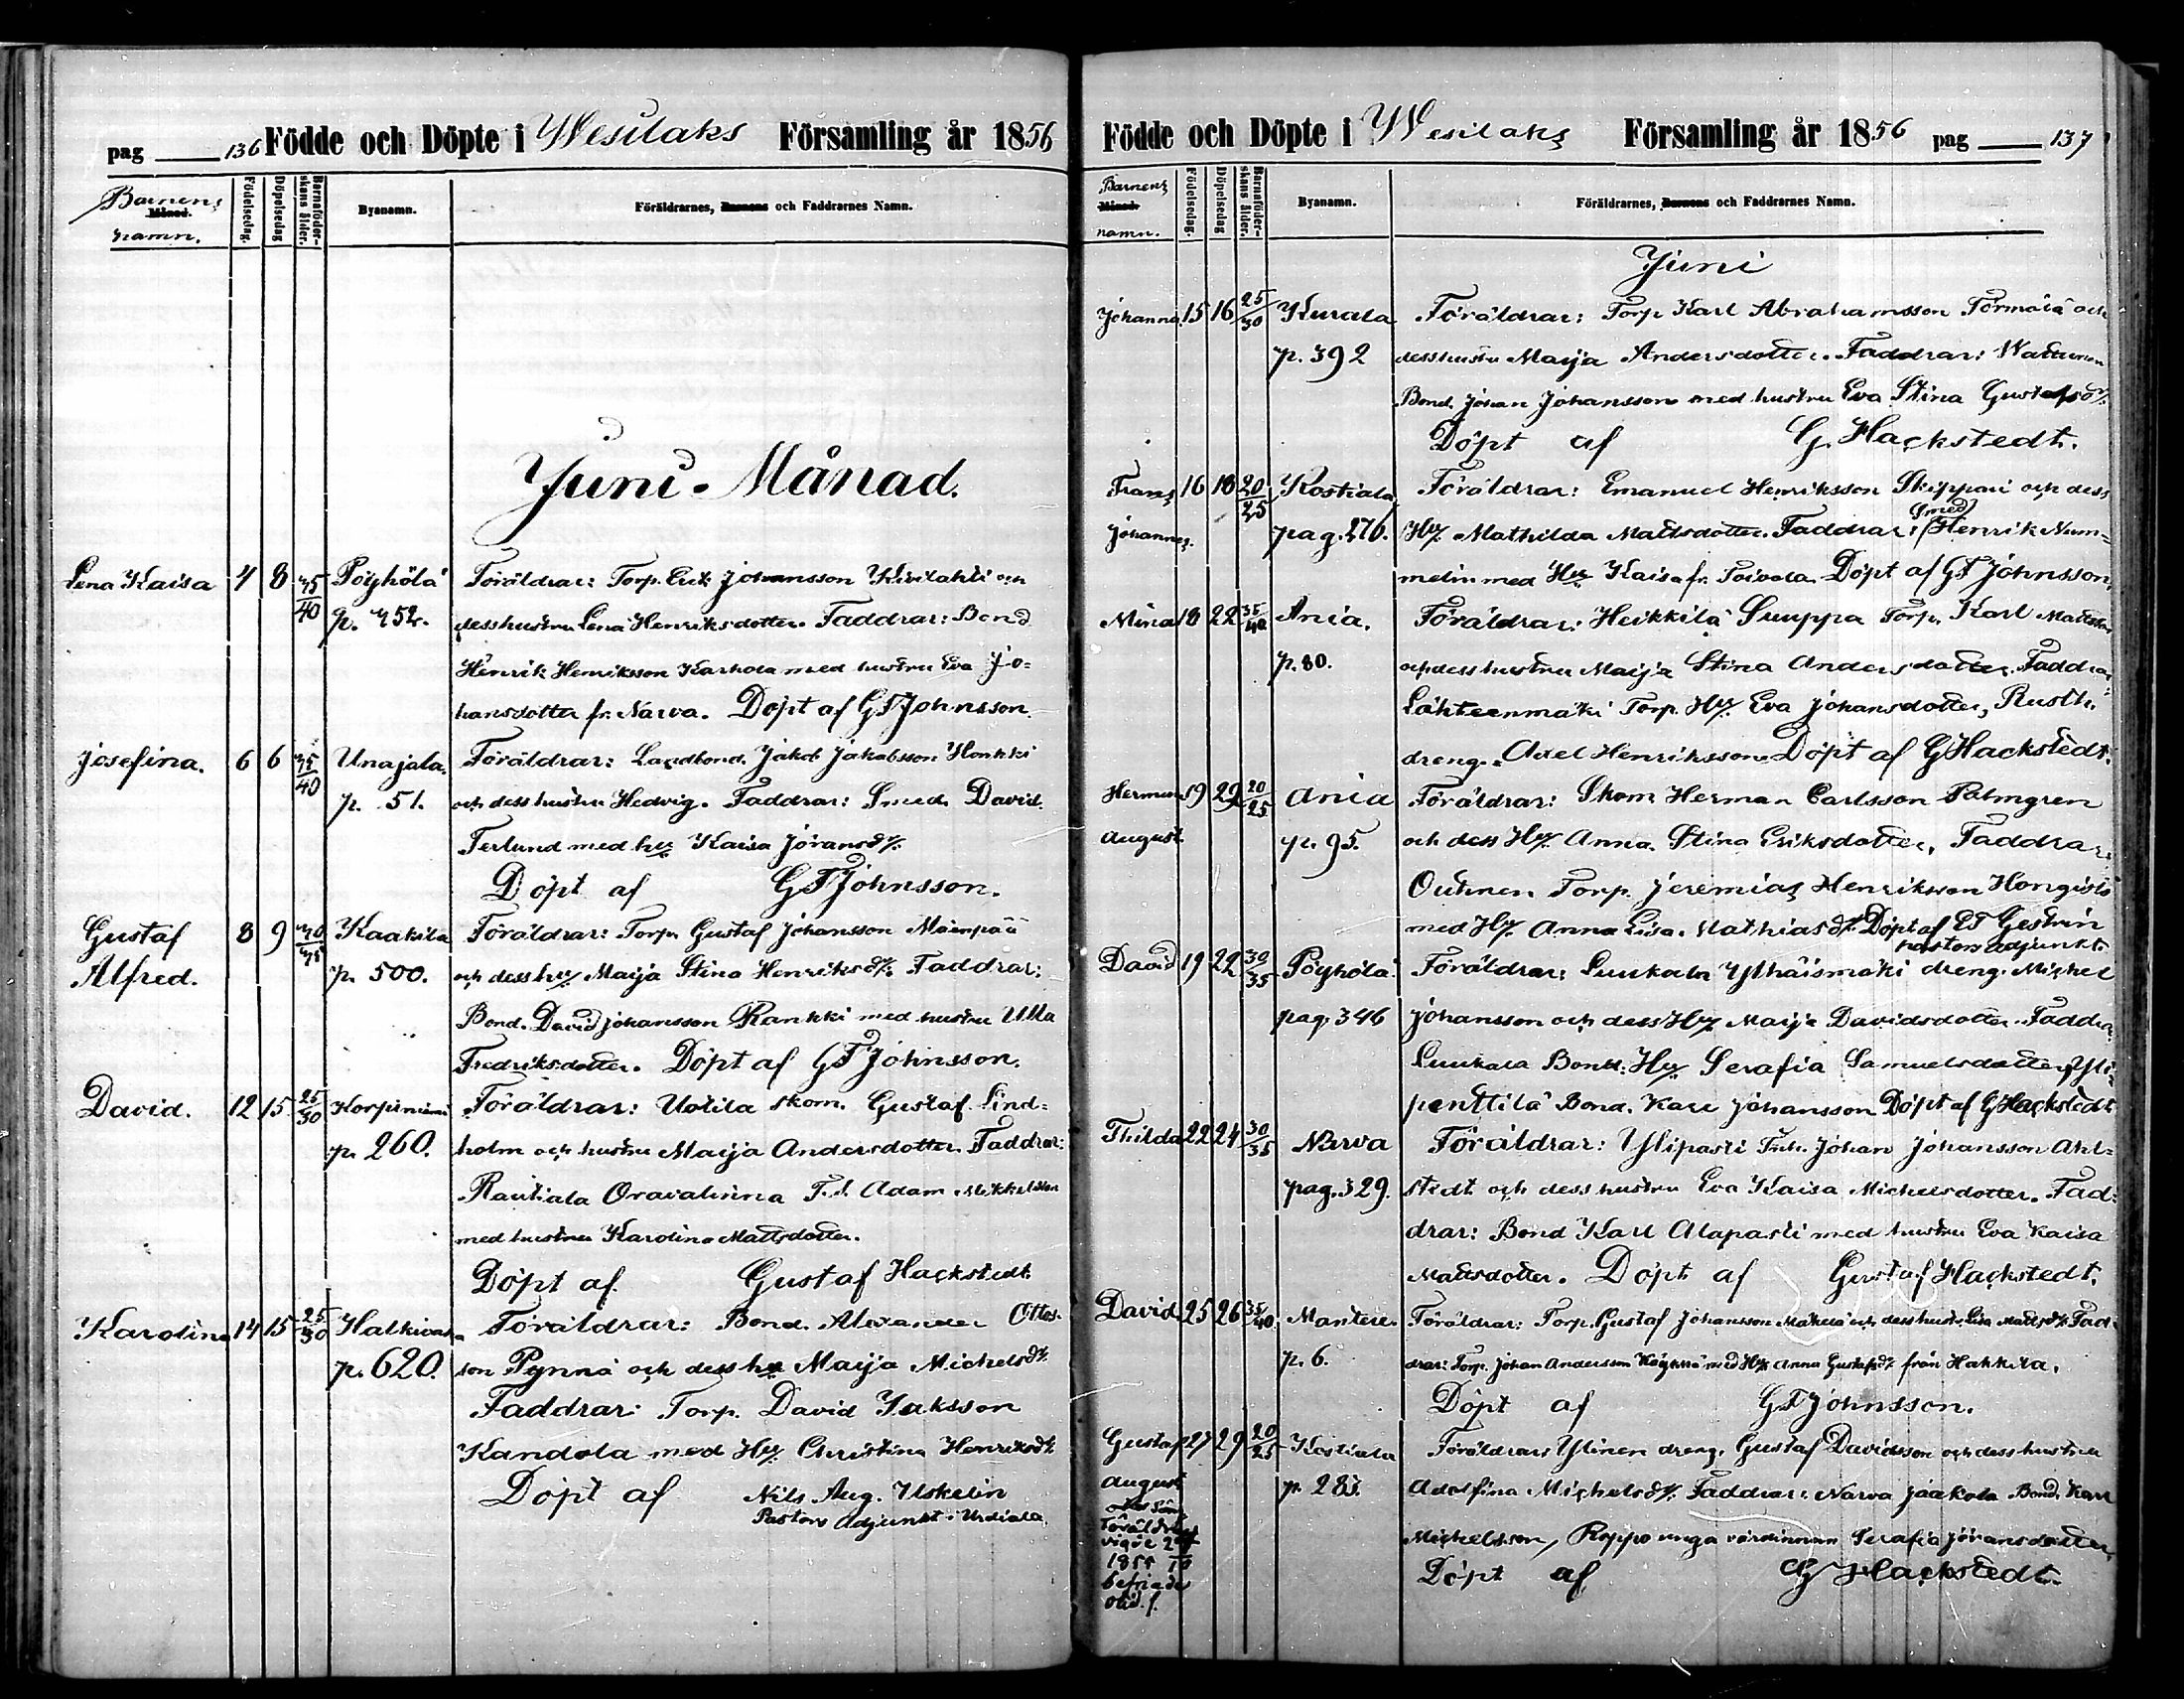 pag 136 Födde och Döpte i Wesilaks Församling år 1856
Barnens Månad. namn.
Födelsedag.
Döpelsedag
Barnaföder-
skans ålder.
Byanamn.
Föräldrarnes, Barnens och Faddrarnes Namn.
Juni-Månad.
Lena Kaisa 7 8 35/40 Pöyhölä Föräldrar: Torp. Erik Johansson Kivilahti och
p. 352. dess hustru Lena Henriksdotter. Faddrar: Bond
Henrik Henriksson Karhola med hustru Eva Jo=
hansdotter fr. Narva. Döpt af GFJohnsson.
Josefina. 6 6 35/40 Unajala. Föräldrar: Landbond. Jakob Jakobsson Honkki
p. 51. och dess hustru Hedvig. Faddrar: Smed. David
Terlund med hu Kaisa Jöransd/r.
Döpt af GFJohnsson.
Gustaf 8 9 Kaakila Föräldrar: Torp. Gustaf Johansson Mäenpää
Alfred. p. 500. och dess hu Maija Stina Henriksd/r. Faddrar:
Bond. David Johansson Rankki med hustru Ulla
Fredriksdotter. Döpt af GFJohnsson.
David. 12 15 25/30 Korpiniemi Föräldrar: Uotila skom. Gustaf Lind=
p. 260. holm och hustru Maija Andersdotter. Faddrar:
Rautiala Oravalinna T.d. Adam Mikkelsson
med hustru Karolina Mattsdotter.
Döpt af. Gustaf Hackstedt
Karolina 14 15 25/30 Halkivaha Föräldrar: Bond. Alexander Ottos-
p. 620. son Pynnä och dess hu Maija Michelsd/r.
Faddrar: Torp. David Isaksson
Kandola med Hu Christina Henriksd/r.
Döpt af Nils Aug. Uskelin
Pastors Adjunkt i Urdiala
Födde och Döpte i Wesilaks Församling år 1856 pag 137
Barnens Månad. namn.
Födelsedag.
Döpelsedag
Barnaföder-
skans ålder.
Byanamn.
Föräldrarnes, Barnens och Faddrarnes Namn.
Juni
Johanna 15 16 25/30 Kurala Föräldrar: Torp Karl Abrahamsson Törmälä och
p. 392 dess hustru Maija Andersdotter. Faddrar:
Bond. Johan Johansson med hustru Eva Stina Gustafsd/r.
Döpt af G. Hackstedt.
Frans 16 18 20/25 Kostiala Föräldrar: Emanuel Henriksson Skippari och dess
Smed
Johannes. pag. 270. Hu. Mathilda Mattsdotter. Faddrar: Henrik Num=
melin med Hu Kaisa fr. Toivola. Döpt af GFJohnsson
Mina 18 22 35/40 Ania. Föräldrar: Heikkilä Suuppa Torp. Karl Mattsson
p. 80. och dess hustru Maija Stina Andersdotter. Faddrar:
Lähteenmäki Torp. Hu. Eva Johansdotter, Rusth.
dreng. Axel Henriksson. Döpt af GHackstedt.
Herman 19 22 20/25 Ania Föräldrar: Skom Herman Carlsson Palmgren
August p. 95. och dess Hu. Anna Stina Eriksdotter. Faddrar:
Outinen Torp. Jeremias Henriksson Hongisto
med Hu. Anna Lisa. Mathiasd/r. Döpt af Gestrin
pastors adjunkt.
David 19 22 30/35 Pöyhölä. Föräldrar: Luukala Ylhäismäki dreng. Michel
pag. 346 Johansson och dess Hu Maija Davidsdotter. Faddrar
Luukala Bond. Hu Serafia Samuelsdotter, Yli=
penttilä Bond. Karl Johansson Döpt af GHackstedt
Thilda 22 24 30/35 Narva Föräldrar: Ylipasti Johan Johansson Ahl=
pag. 329. stedt och dess hustru Eva Kaisa Michelsdotter. Fad=
drar: Bond Karl Alapasti med hustru Eva Kaisa
Mattsdotter. Döpt af Gustaf Hackstedt.
David 25 26 35/40 Mantere. Föräldrar: Torp. Gustaf Johansson Mäkelä och dess hustr. Lisa Mattsd/r. Fad=
p. 6. drar: Torp. Johan Andersson med Hu. Anna Gustafsd/r. från Hakkila.
Döpt af GFJohnsson.
Gustaf 27 29 20/25 Kostiala Föräldrar: Ylinen dreng. Gustaf Davidsson och dess hustru
August p. 285. Adolfina Michelsd/r. Faddrar: Narva Jaakola Bond. Karl
Michelsson, Roppo unga värdinnan Serafia Jöransdotter.
Döpt af G Hackstedt.
Föräldrar
vigde
1855
befriade